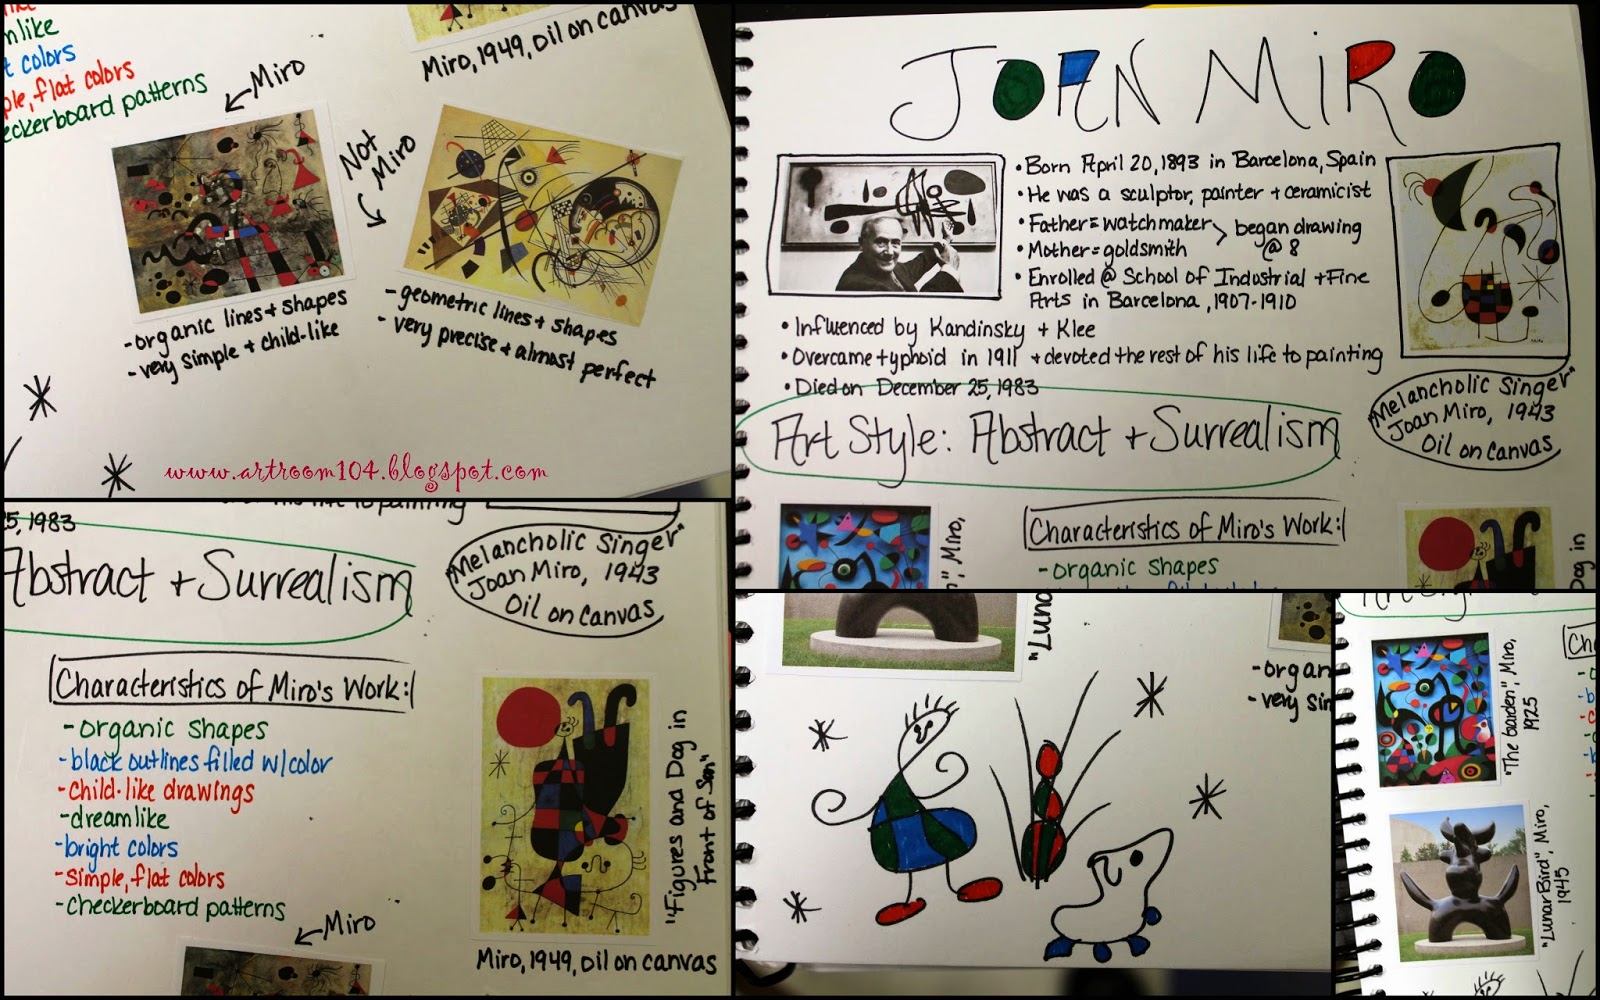 mlike
t colors
ple, flat colors
eckerboard patterns
Miro
Miro, 1949, oil on canvas
Not
Miro
-organic lines + shapes
-very simple + child-like
-geometric lines + shapes
-very precise + almost perfect
www.artroom104.blogspot.com
JOAN MIRO
•Born April 20, 1893 in Barcelona, Spain
•He was a sculptor, painter + ceramicist
•Father = watchmaker
•Mother = goldsmith
began drawing
@ 8
•Enrolled @ School of Industrial + Fine
Arts in Barcelona, 1907-1910
•Influenced by Kandinsky + Klee
•Overcame typhoid in 1911 + devoted the rest of his life to painting
•Died on December 25, 1983
Art Style: Abstract + Surrealism
"Melancholic Singer"
Joan Miro, 1943
Oil on Canvas
Characteristics of Miro's Work:
-organic shapes
", Miro,
Dog in
to painting
25, 1983
Abstract + Surrealism
"Melancholic Singer"
Joan Miro, 1943
Oil on Canvas
Characteristics of Miro's Work:
-organic shapes
-black outlines filled w/color
-child-like drawings
-dreamlike
-bright colors
-simple, flat colors
-checkerboard patterns
Miro
"Figures and Dog in
Front of Sun"
Miro, 1949, oil on canvas
"Luna
-organ
-very sim
"The Garden", Miro,
1925
"Lunar Bird", Miro,
1945